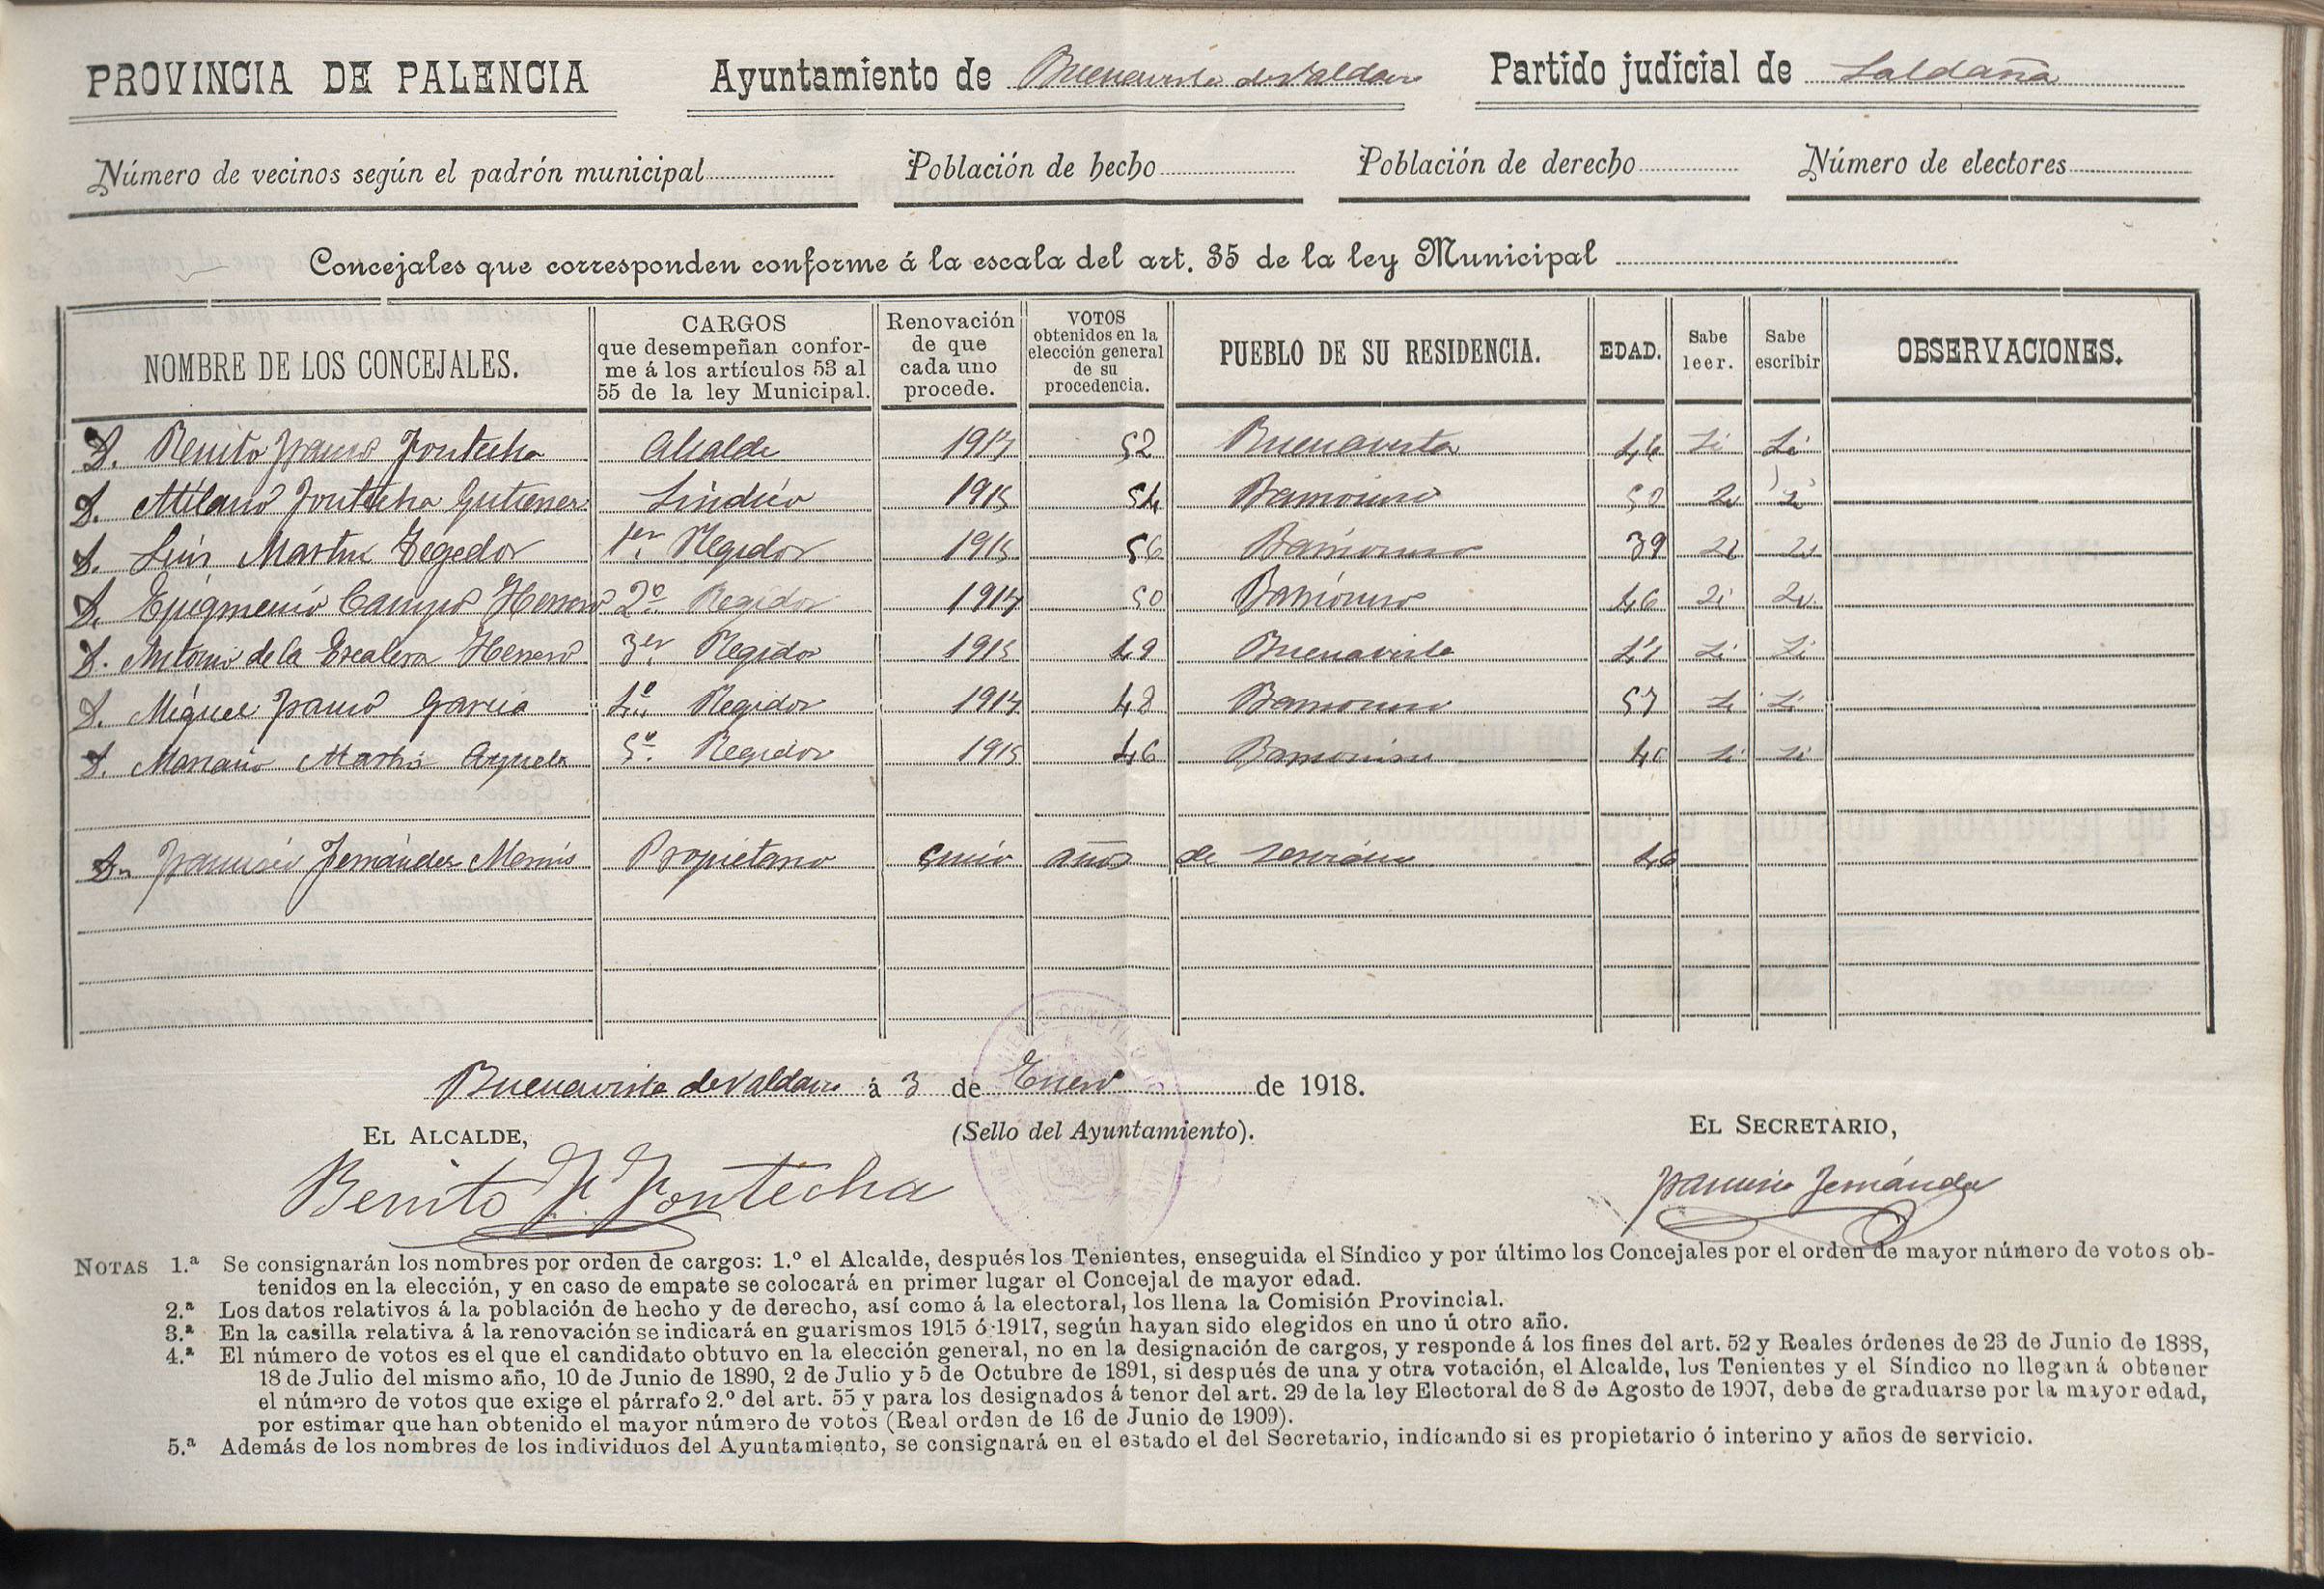 PROVINCIA DE PALENCIA Ayuntamiento de Buenavista de Valdavia Partido judicial de Saldaña
Número de vecinos según el padrón municipal Población de hecho Población de derecho Número de electores
Concejales que corresponden conforme á la escala del art. 35 de la ley Municipal
NOMBRE DE LOS CONCEJALES. CARGOS que desempeñan conforme á los artículos 53 al 55 de la ley Municipal. Renovación de que cada uno procede. VOTOS obtenidos en la elección general de su procedencia. PUEBLO DE SU RESIDENCIA. EDAD. Sabe leer. Sabe escribir OBSERVACIONES.
D. Benito Franco Fontecha Alcalde 1917 52 Buenavista 46 Si Si
D. Atilano Fontecha Gutierrez Sindico 1915 54 Barriosuso 52 Si Si
D. Luis Martin Tegedor 1er Regidor 1915 56 Barriosuso 39 Si Si
D. Epigmenio Campo Herrero 2º Regidor 1917 50 Barriosuso 46 Si Si
D. Antonio de la Escalera Herrero 3er Regidor 1915 49 Buenavista Si Si
D. Miguel Franco Garcia 4º Regidor 1917 48 Barriosuso 57 Si Si
D. Mariano Martin 5º Regidor 1915 46 Barriosuso Si Si
Dn Francisco Fernández Propietario cinco años de servicio 46
Buenavista de Valdavia á 3 de Enero de 1918.
EL ALCALDE, (Sello del Ayuntamiento). EL SECRETARIO,
Benito F. Fontecha Francisco Fernández
NOTAS 1.ª Se consignarán los nombres por orden de cargos: 1.º el Alcalde, después los Tenientes, enseguida el Síndico y por último los Concejales por el orden de mayor número de votos ob-
tenidos en la elección, y en caso de empate se colocará en primer lugar el Concejal de mayor edad.
2.ª Los datos relativos á la población de hecho y de derecho, así como á la electoral, los llena la Comisión Provincial.
3.ª En la casilla relativa á la renovación se indicará en guarismos 1915 ó 1917, según hayan sido elegidos en uno ú otro año.
4.ª El número de votos es el que el candidato obtuvo en la elección general, no en la designación de cargos, y responde á los fines del art. 52 y Reales órdenes de 23 de Junio de 1888,
18 de Julio del mismo año, 10 de Junio de 1890, 2 de Julio y 5 de Octubre de 1891, si después de una y otra votación, el Alcalde, los Tenientes y el Síndico no llegan á obtener
el número de votos que exige el párrafo 2.º del art. 55 y para los designados á tenor del art. 29 de la ley Electoral de 8 de Agosto de 1907, debe de graduarse por la mayor edad,
por estimar que han obtenido el mayor número de votos (Real orden de 16 de Junio de 1909).
5.ª Además de los nombres de los individuos del Ayuntamiento, se consignará en el estado el del Secretario, indicando si es propietario ó interino y años de servicio.